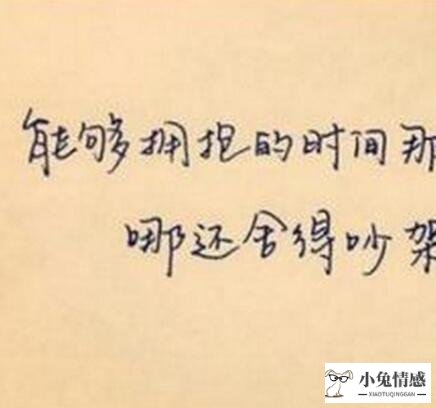 能够拥抱的时间那
哪还舍得吵架
小兔情感
XIAOTUQINGGAN